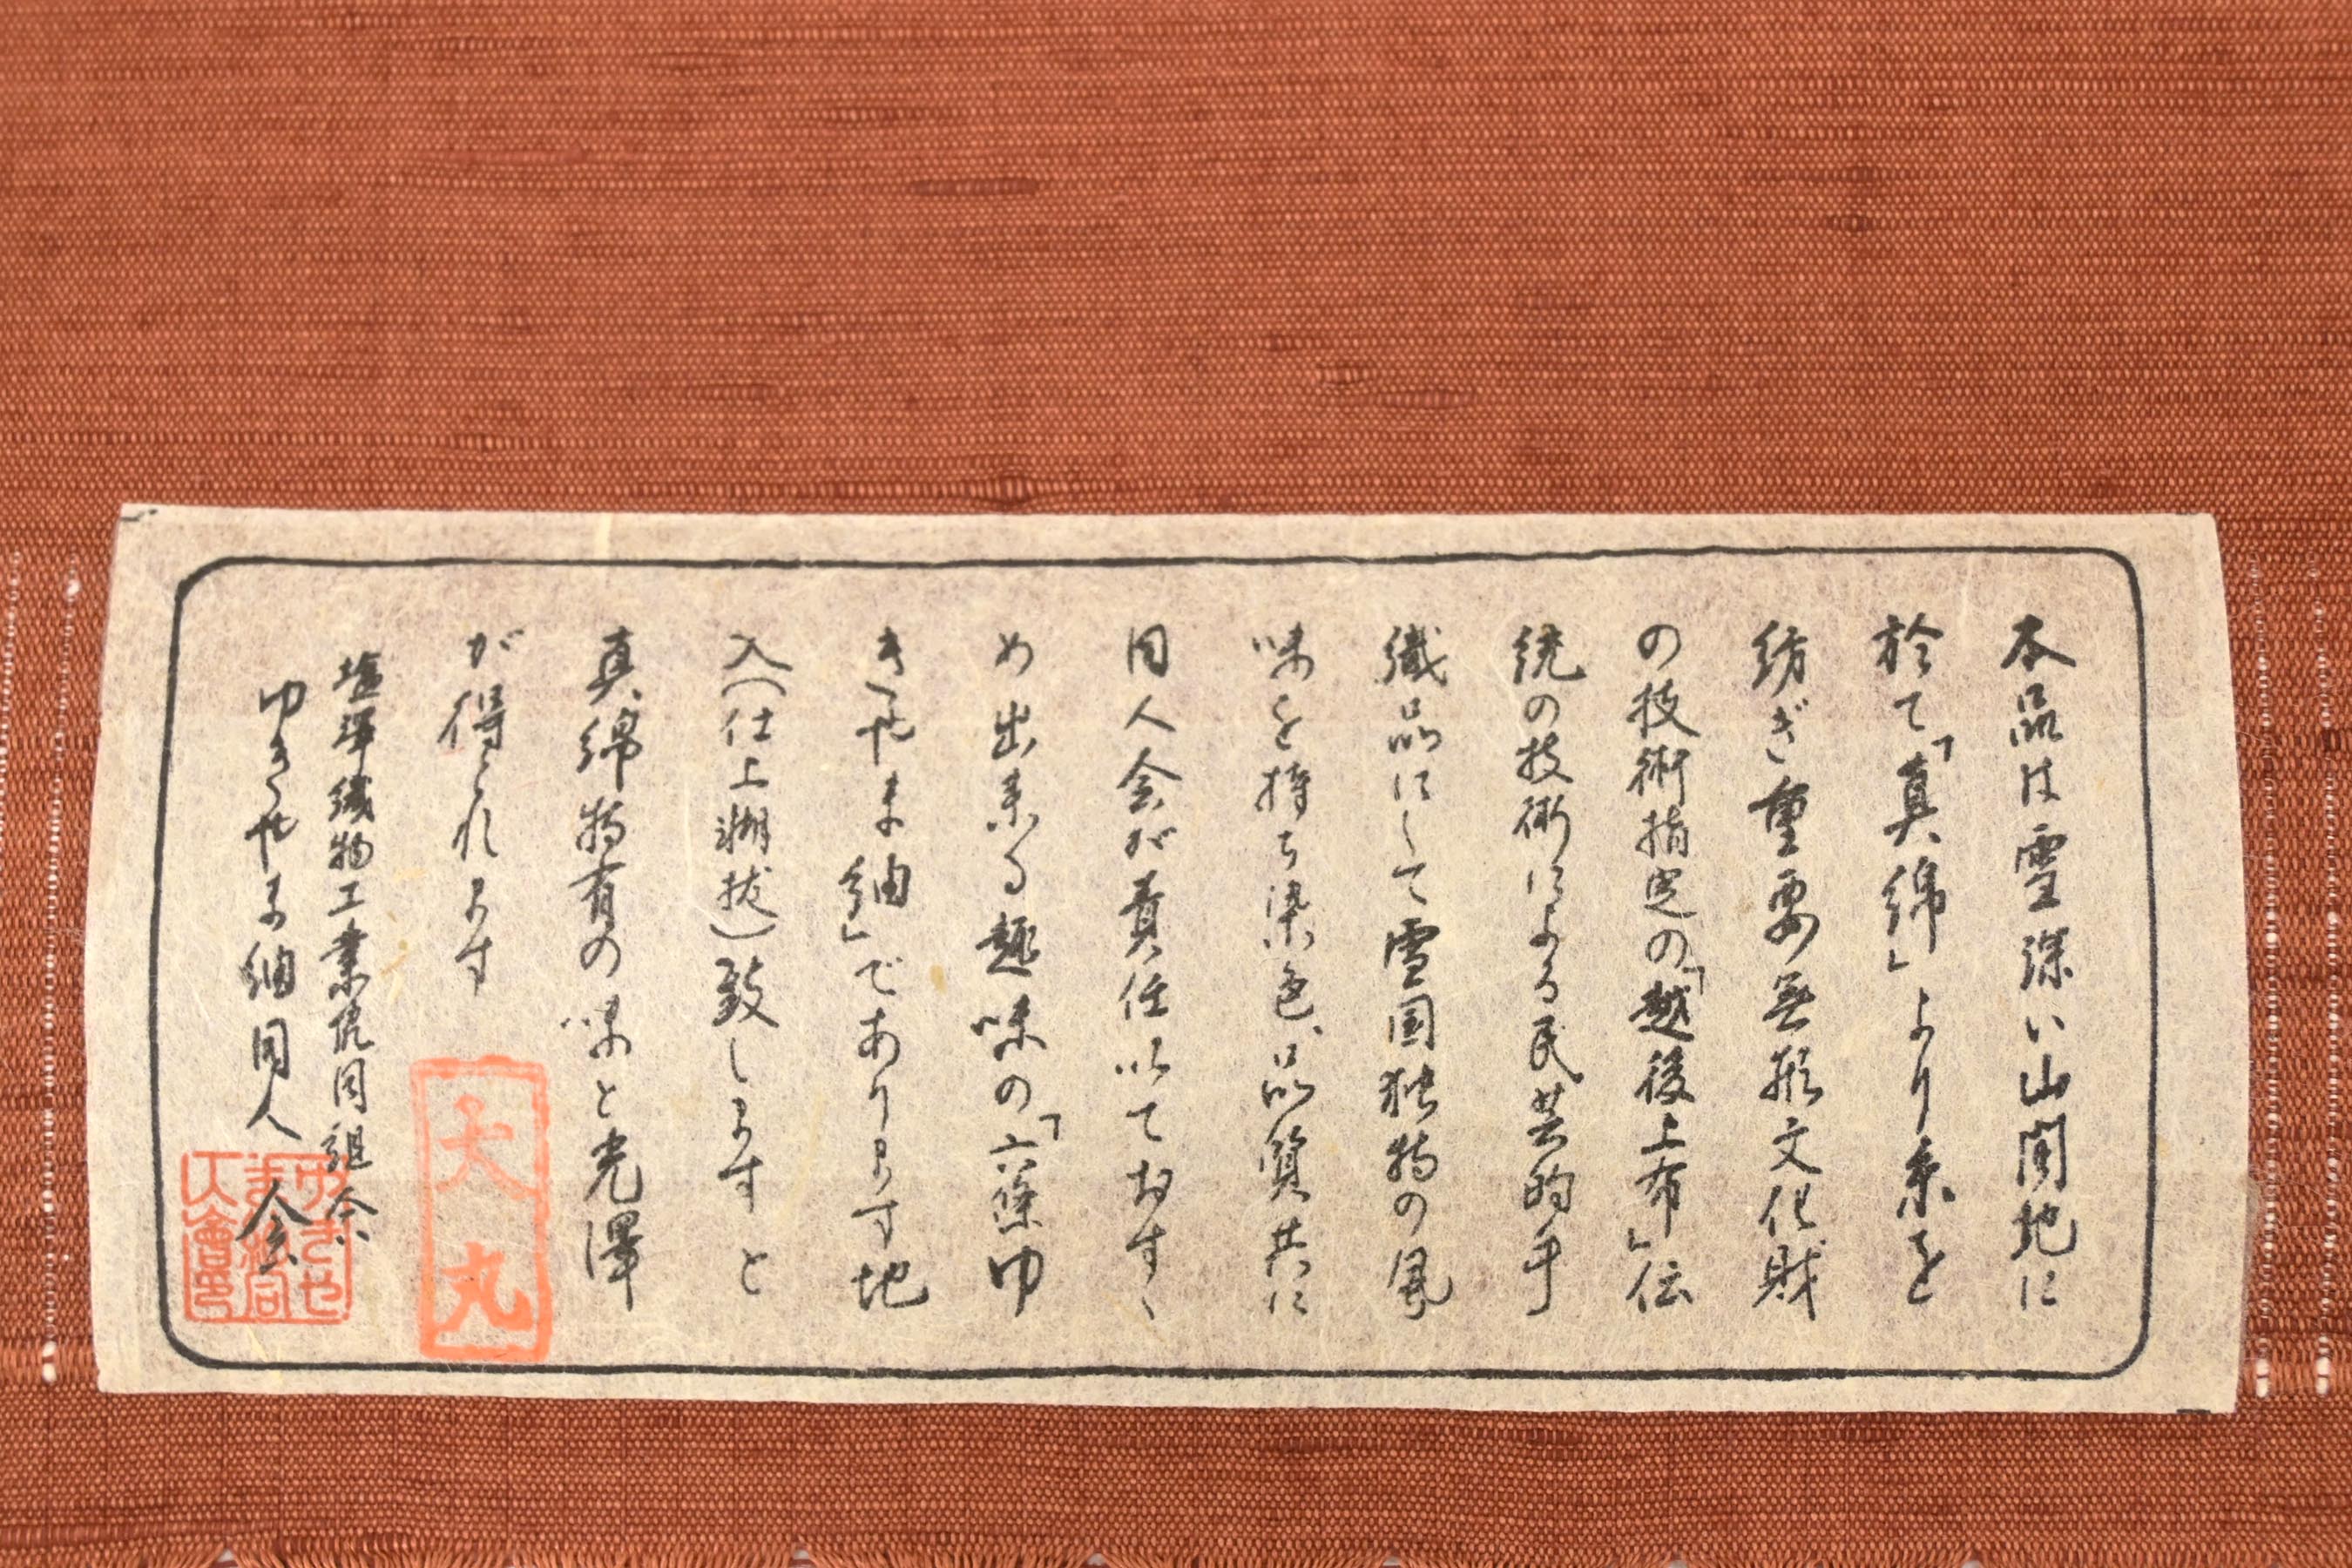 本品は雪深い山間地に
於て「真綿」より糸を
紡ぎ重要無形文化財
の技術指定の「越後上布」伝
統の技術による民芸的手
織品にして雪国独特の風
味を持ち染色、品質共に
同人会が責任以ておすゝ
め出来る趣味の「六篠ゆ
きやま紬」であります地
入(仕上糊抜)致しますと
真綿特有の味と光澤
が得られます
塩澤織物工業協同組合
ゆきやま紬同人会
天
丸